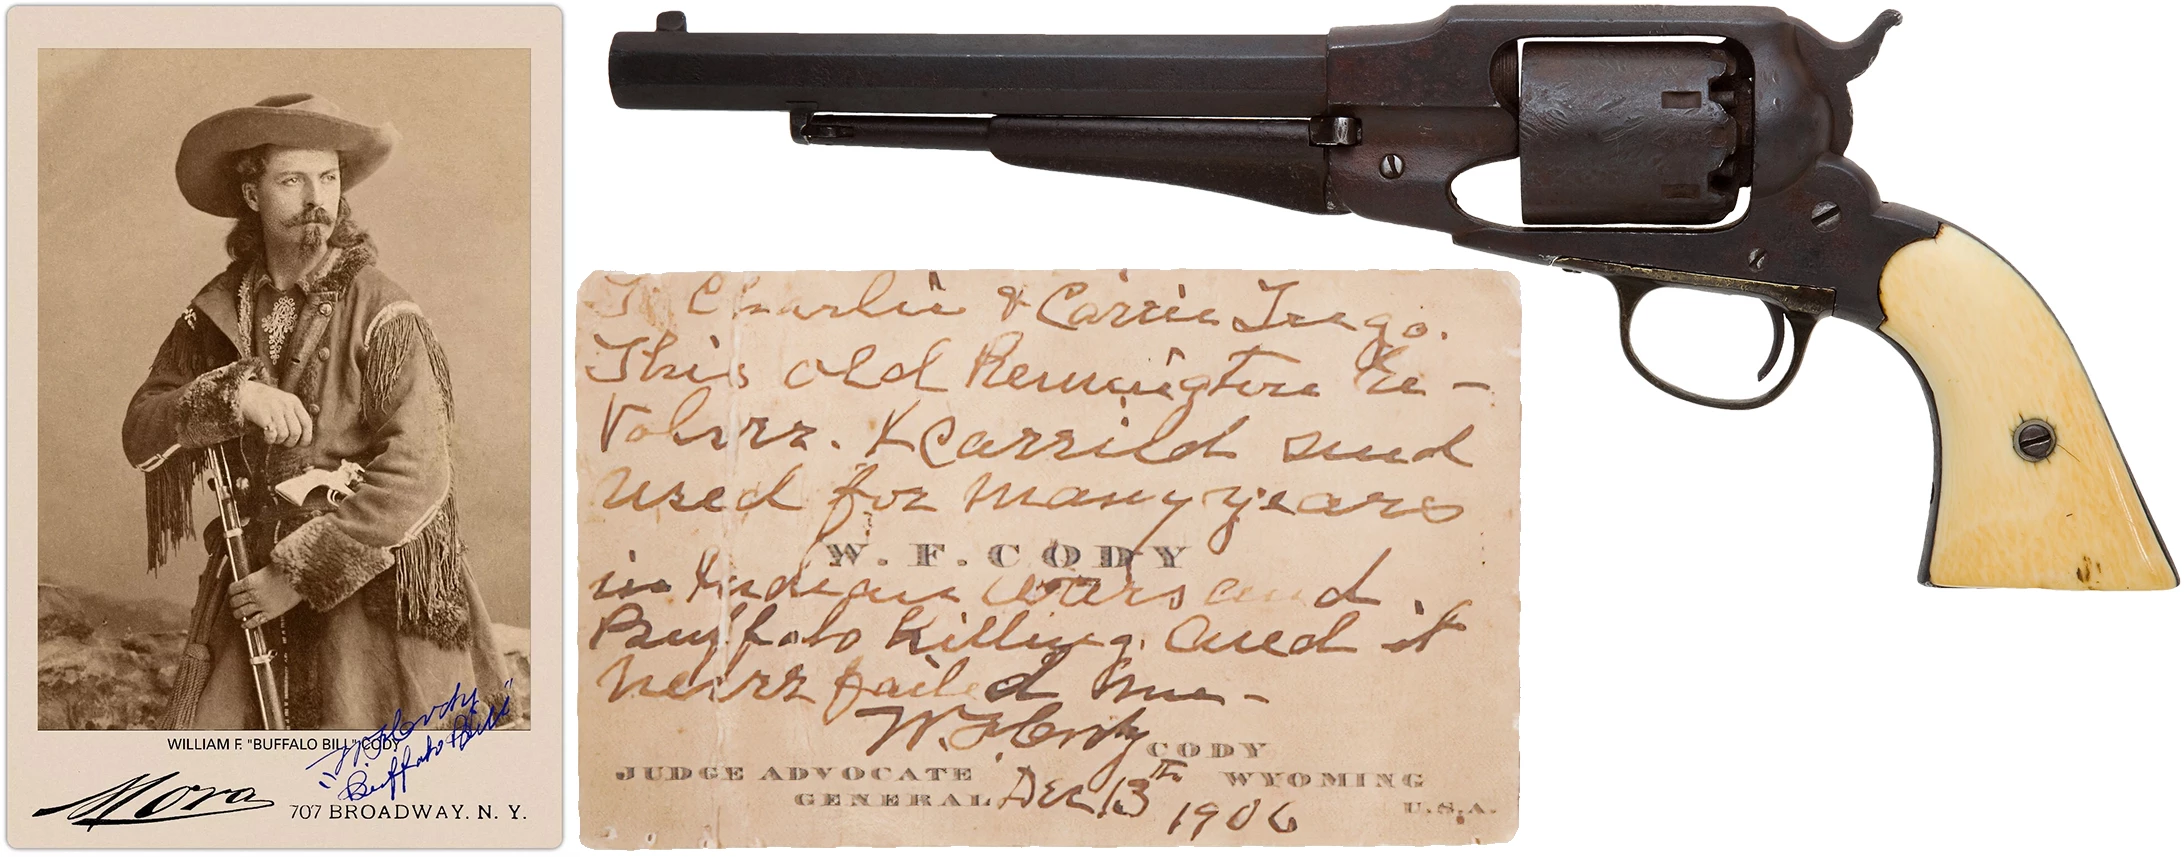 WILLIAM F. "BUFFALO BILL" CODY
W. F. Cody
"Buffalo Bill"
Mora
707 BROADWAY. N. Y.
To Charlie & Carrie Trego.
This old Remington Re-
volver. I carried and
used for many years
W. F. CODY
in Indian wars and
Buffalo Killing. And it
never failed me-
W. F. Cody
CODY
JUDGE ADVOCATE
GENERAL
WYOMING
U.S.A.
Dec 13th 1906